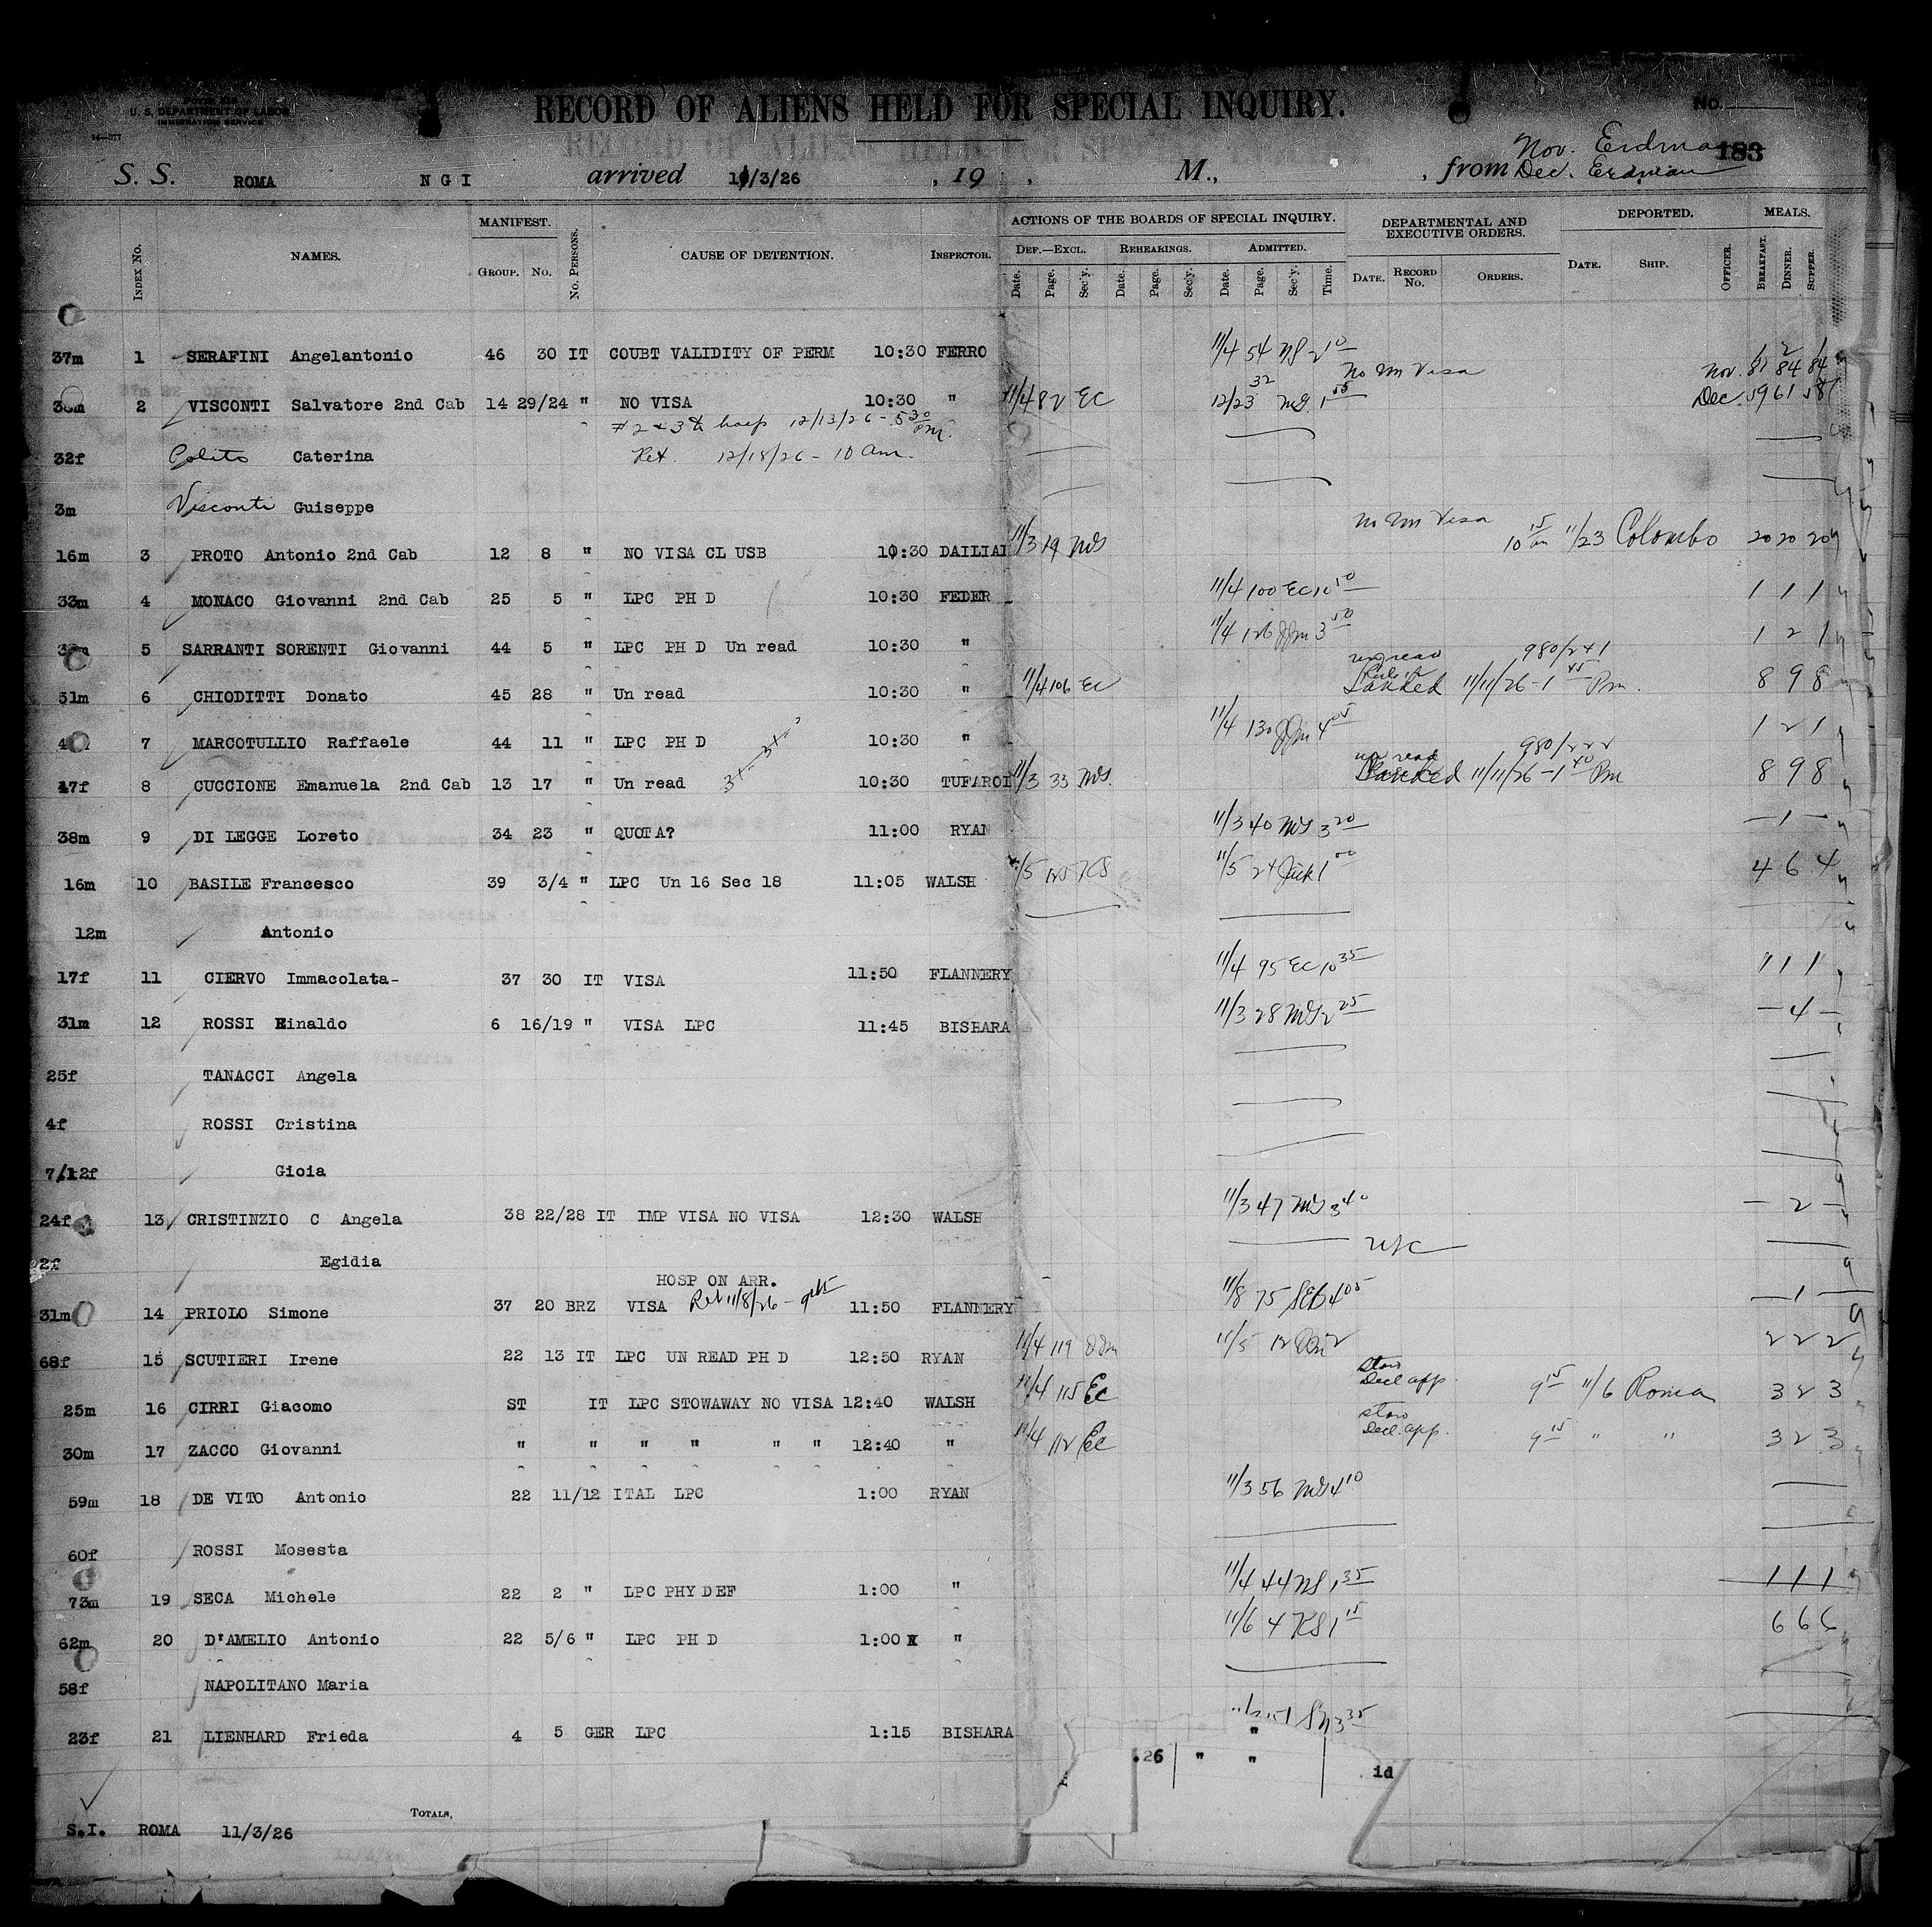 U. S. DEPARTMENT OF LABOR
IMMIGRATION SERVICE
RECORD OF ALIENS HELD FOR SPECIAL INQUIRY.
No.
183
S. S. ROMA N G I arrived 11/3/26 , 19 , M., , from
Nov. Erdman
Dec. Erdman
INDEX NO. NAMES. MANIFEST. GROUP. NO. NO. PERSONS. CAUSE OF DETENTION. INSPECTOR. ACTIONS OF THE BOARDS OF SPECIAL INQUIRY. DEF.—EXCL. Date. Page. Sec'y. REHEARINGS. Date. Page. Sec'y. ADMITTED. Date. Page. Sec'y. Time. DEPARTMENTAL AND EXECUTIVE ORDERS. DATE. RECORD NO. ORDERS. DEPORTED. DATE. SHIP. OFFICER. MEALS. BREAKFAST. DINNER. SUPPER.
37m 1 SERAFINI Angelantonio 46 30 IT COUBT VALIDITY OF PERM 10:30 FERRO 11/4 54 NS 2 10
No Im Visa
Nov. 81 84 84
2 VISCONTI Salvatore 2nd Cab 14 29/24 " NO VISA 10:30 " 11/4 82 EC 12/23 32 MS. 1 55 Dec. 59 61 58
#2 & 3 to hosp 12/13/26 - 5 30 Pm.
32f Polito Caterina Ret. 12/18/26 - 10 am.
3m Visconti Guiseppe
No Im Visa
16m 3 PROTO Antonio 2nd Cab 12 8 " NO VISA CL USB 10:30 DAILIAI 11/3 19 MS 10 15 am 11/23 Colombo 20 20 20
33m 4 MONACO Giovanni 2nd Cab 25 5 " LPC PH D 10:30 FEDER 11/4 100 EC 10 10 1 1 1
5 SARRANTI SORENTI Giovanni 44 5 " LPC PH D Un read 10:30 " 11/4 126 JJm 3 50 1 2 1
980/241
51m 6 CHIODITTI Donato 45 28 " Un read 10:30 " 11/4 106 EC Landed 11/11/26 - 1 45 Pm. 8 9 8
7 MARCOTULLIO Raffaele 44 11 " LPC PH D 10:30 " 11/4 130 JJm 4 05 1 2 1
980/222
47f 8 CUCCIONE Emanuela 2nd Cab 13 17 " Un read 10:30 TUFAROI 11/3 33 MS. Landed 11/11/26 - 1 40 Pm 8 9 8
38m 9 DI LEGGE Loreto 34 23 " QUOTA? 11:00 RYAN 11/3 40 MS 3 20 — 1 —
16m 10 BASILE Francesco 39 3/4 " LPC Un 16 Sec 18 11:05 WALSH 11/5 125 KS 11/5 24 1 00 4 6 4
12m Antonio
17f 11 CIERVO Immacolata- 37 30 IT VISA 11:50 FLANNERY 11/4 95 EC 10 35 1 1 1
31m 12 ROSSI Rinaldo 6 16/19 " VISA LPC 11:45 BISHARA 11/3 28 MS 2 25 — 4 —
25f TANACCI Angela
4f ROSSI Cristina
7/12f Gioia
24f 13 CRISTINZIO C Angela 38 22/28 IT IMP VISA NO VISA 12:30 WALSH 11/3 47 MS 3 40 — 2 —
2f Egidia USC
HOSP ON ARR.
31m 14 PRIOLO Simone 37 20 BRZ VISA Ret 11/8/26 - 11:50 FLANNERY 11/8 75 4 05 — 1 —
68f 15 SCUTIERI Irene 22 13 IT LPC UN READ PH D 12:50 RYAN 11/4 119 JJm 11/5 12 2 2 2 2
Stow
Decl. app.
25m 16 CIRRI Giacomo ST IT LPC STOWAWAY NO VISA 12:40 WALSH 11/4 115 EC 9 15 11/6 Roma 3 2 3
Stow
Decl. app.
30m 17 ZACCO Giovanni " " " " " " 12:40 " 11/4 112 EC 9 15 " " 3 2 3
59m 18 DE VITO Antonio 22 11/12 ITAL LPC 1:00 RYAN 11/3 56 MS 4 10
60f ROSSI Mosesta
73m 19 SECA Michele 22 2 " LPC PHY DEF 1:00 " 11/4 44 NS 1 35 1 1 1
62m 20 D'AMELIO Antonio 22 5/6 " LPC PH D 1:00 " 11/6 4 KS 1 15 6 6 6
58f NAPOLITANO Maria
23f 21 LIENHARD Frieda 4 5 GER LPC 1:15 BISHARA 3 35
"
.26 " "
id
TOTALS,
S.I. ROMA 11/3/26